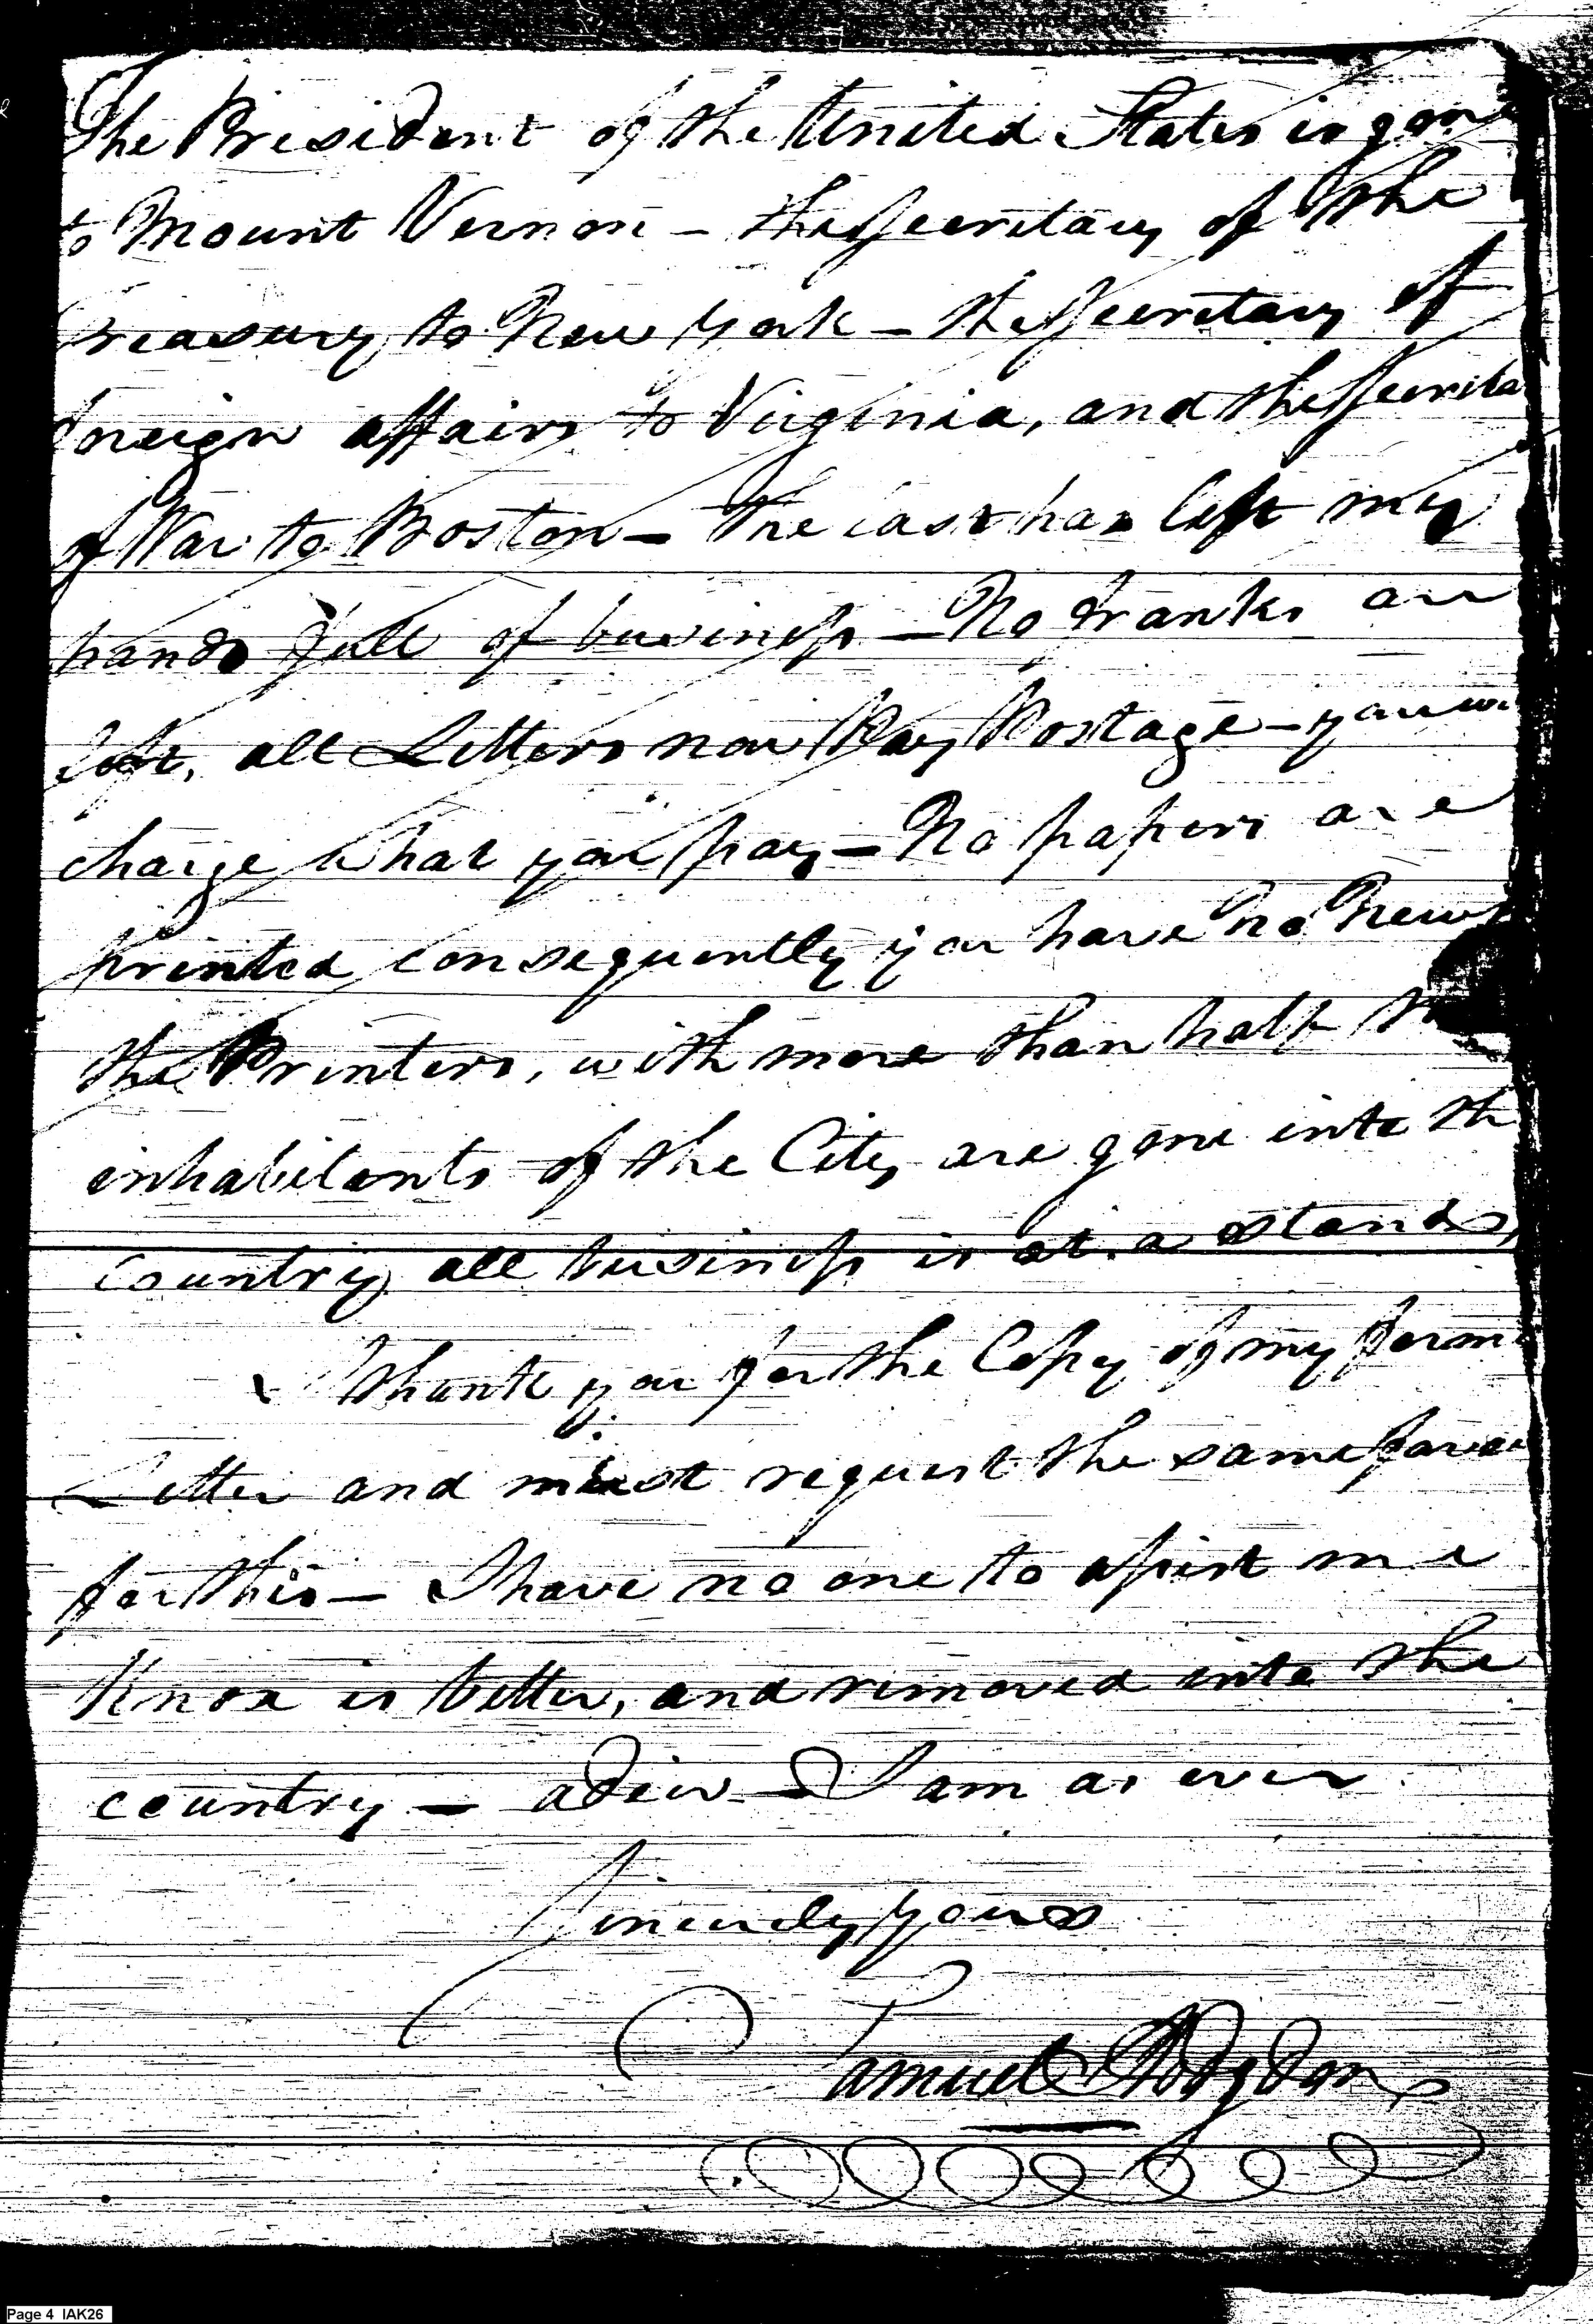 The President of the United States is gone
to Mount Vernon – the Secretary of the
Treasury to New York – the Secretary of
foreign affairs to Virginia, and the Secreta
of War to Boston – The last has left my
hands full of business – No franks are
left, all Letters now Pay Postage – you wi
charge what you pay – No papers are
printed consequently you have no News
the Printers, with more than half th
inhabitants of the City are gone into th
country, all business is at a stand,
Thank you for the Copy of my form
Letter and must request the same favour
for this – I have no one to assist me
Knox is better, and removed into the
country – adieu – I am as ever
Sincerely yours
Samuel Hodgdon
Page 4 IAK26